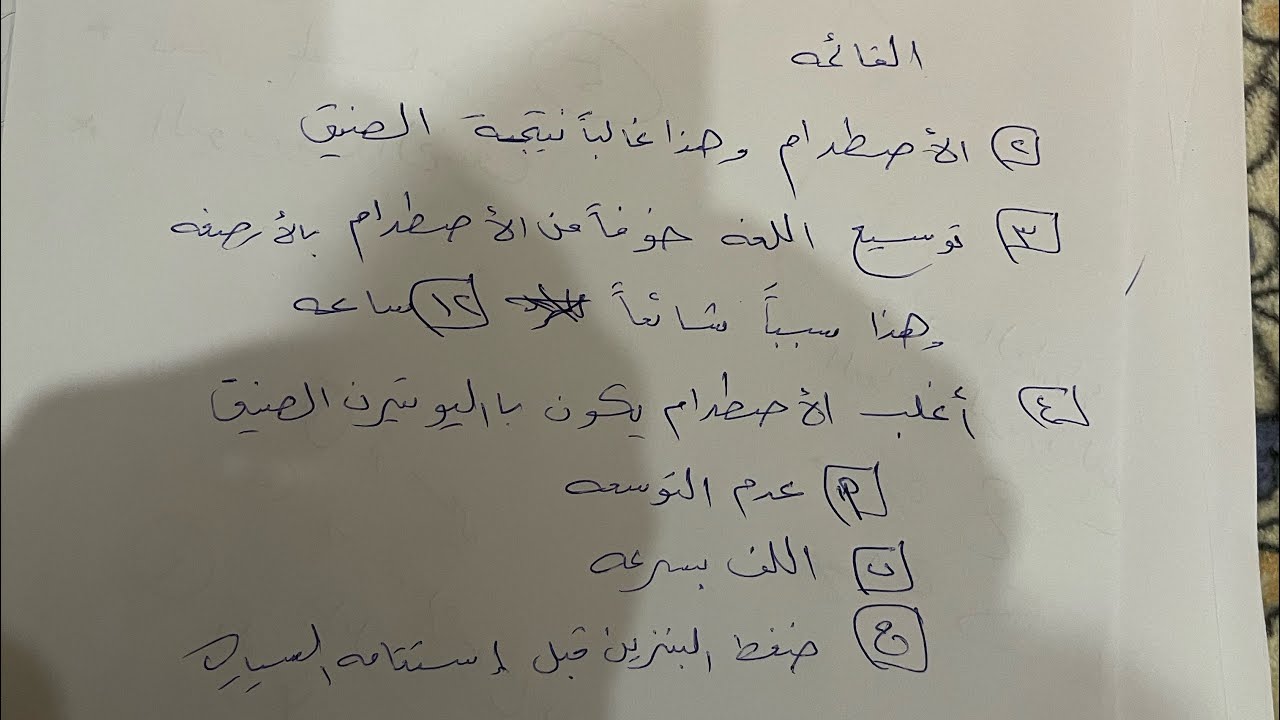 القائمه
٢ الأصطدام وهذا غالباً نتيجة الضيق
٣ توسيع اللفه خوفاً من الأصطدام بالأرصفه
وهذا سبباً شائعاً ١٢ ساعه
٤ أغلب الأصطدام يكون بااليوتيرن الضيق
عدم التوسعه
ب اللف بسرعه
ج ضغط البنزين قبل إستقامه السياره